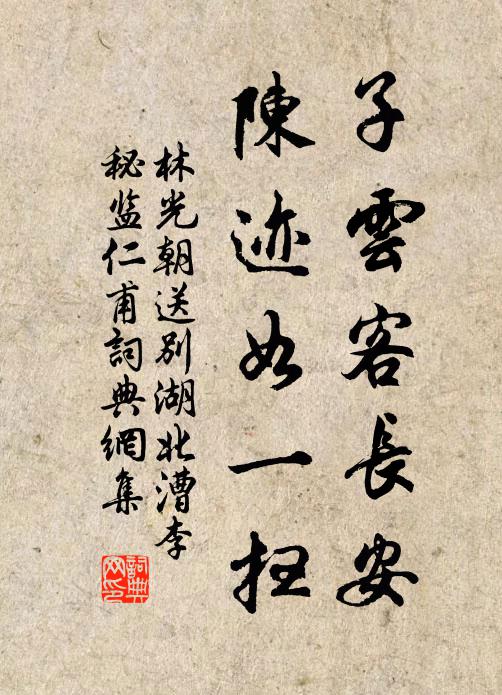 子雲客長安
陳迹如一扫
林光朝送别湖北漕李
秘监仁甫詞典網集
詞典网印